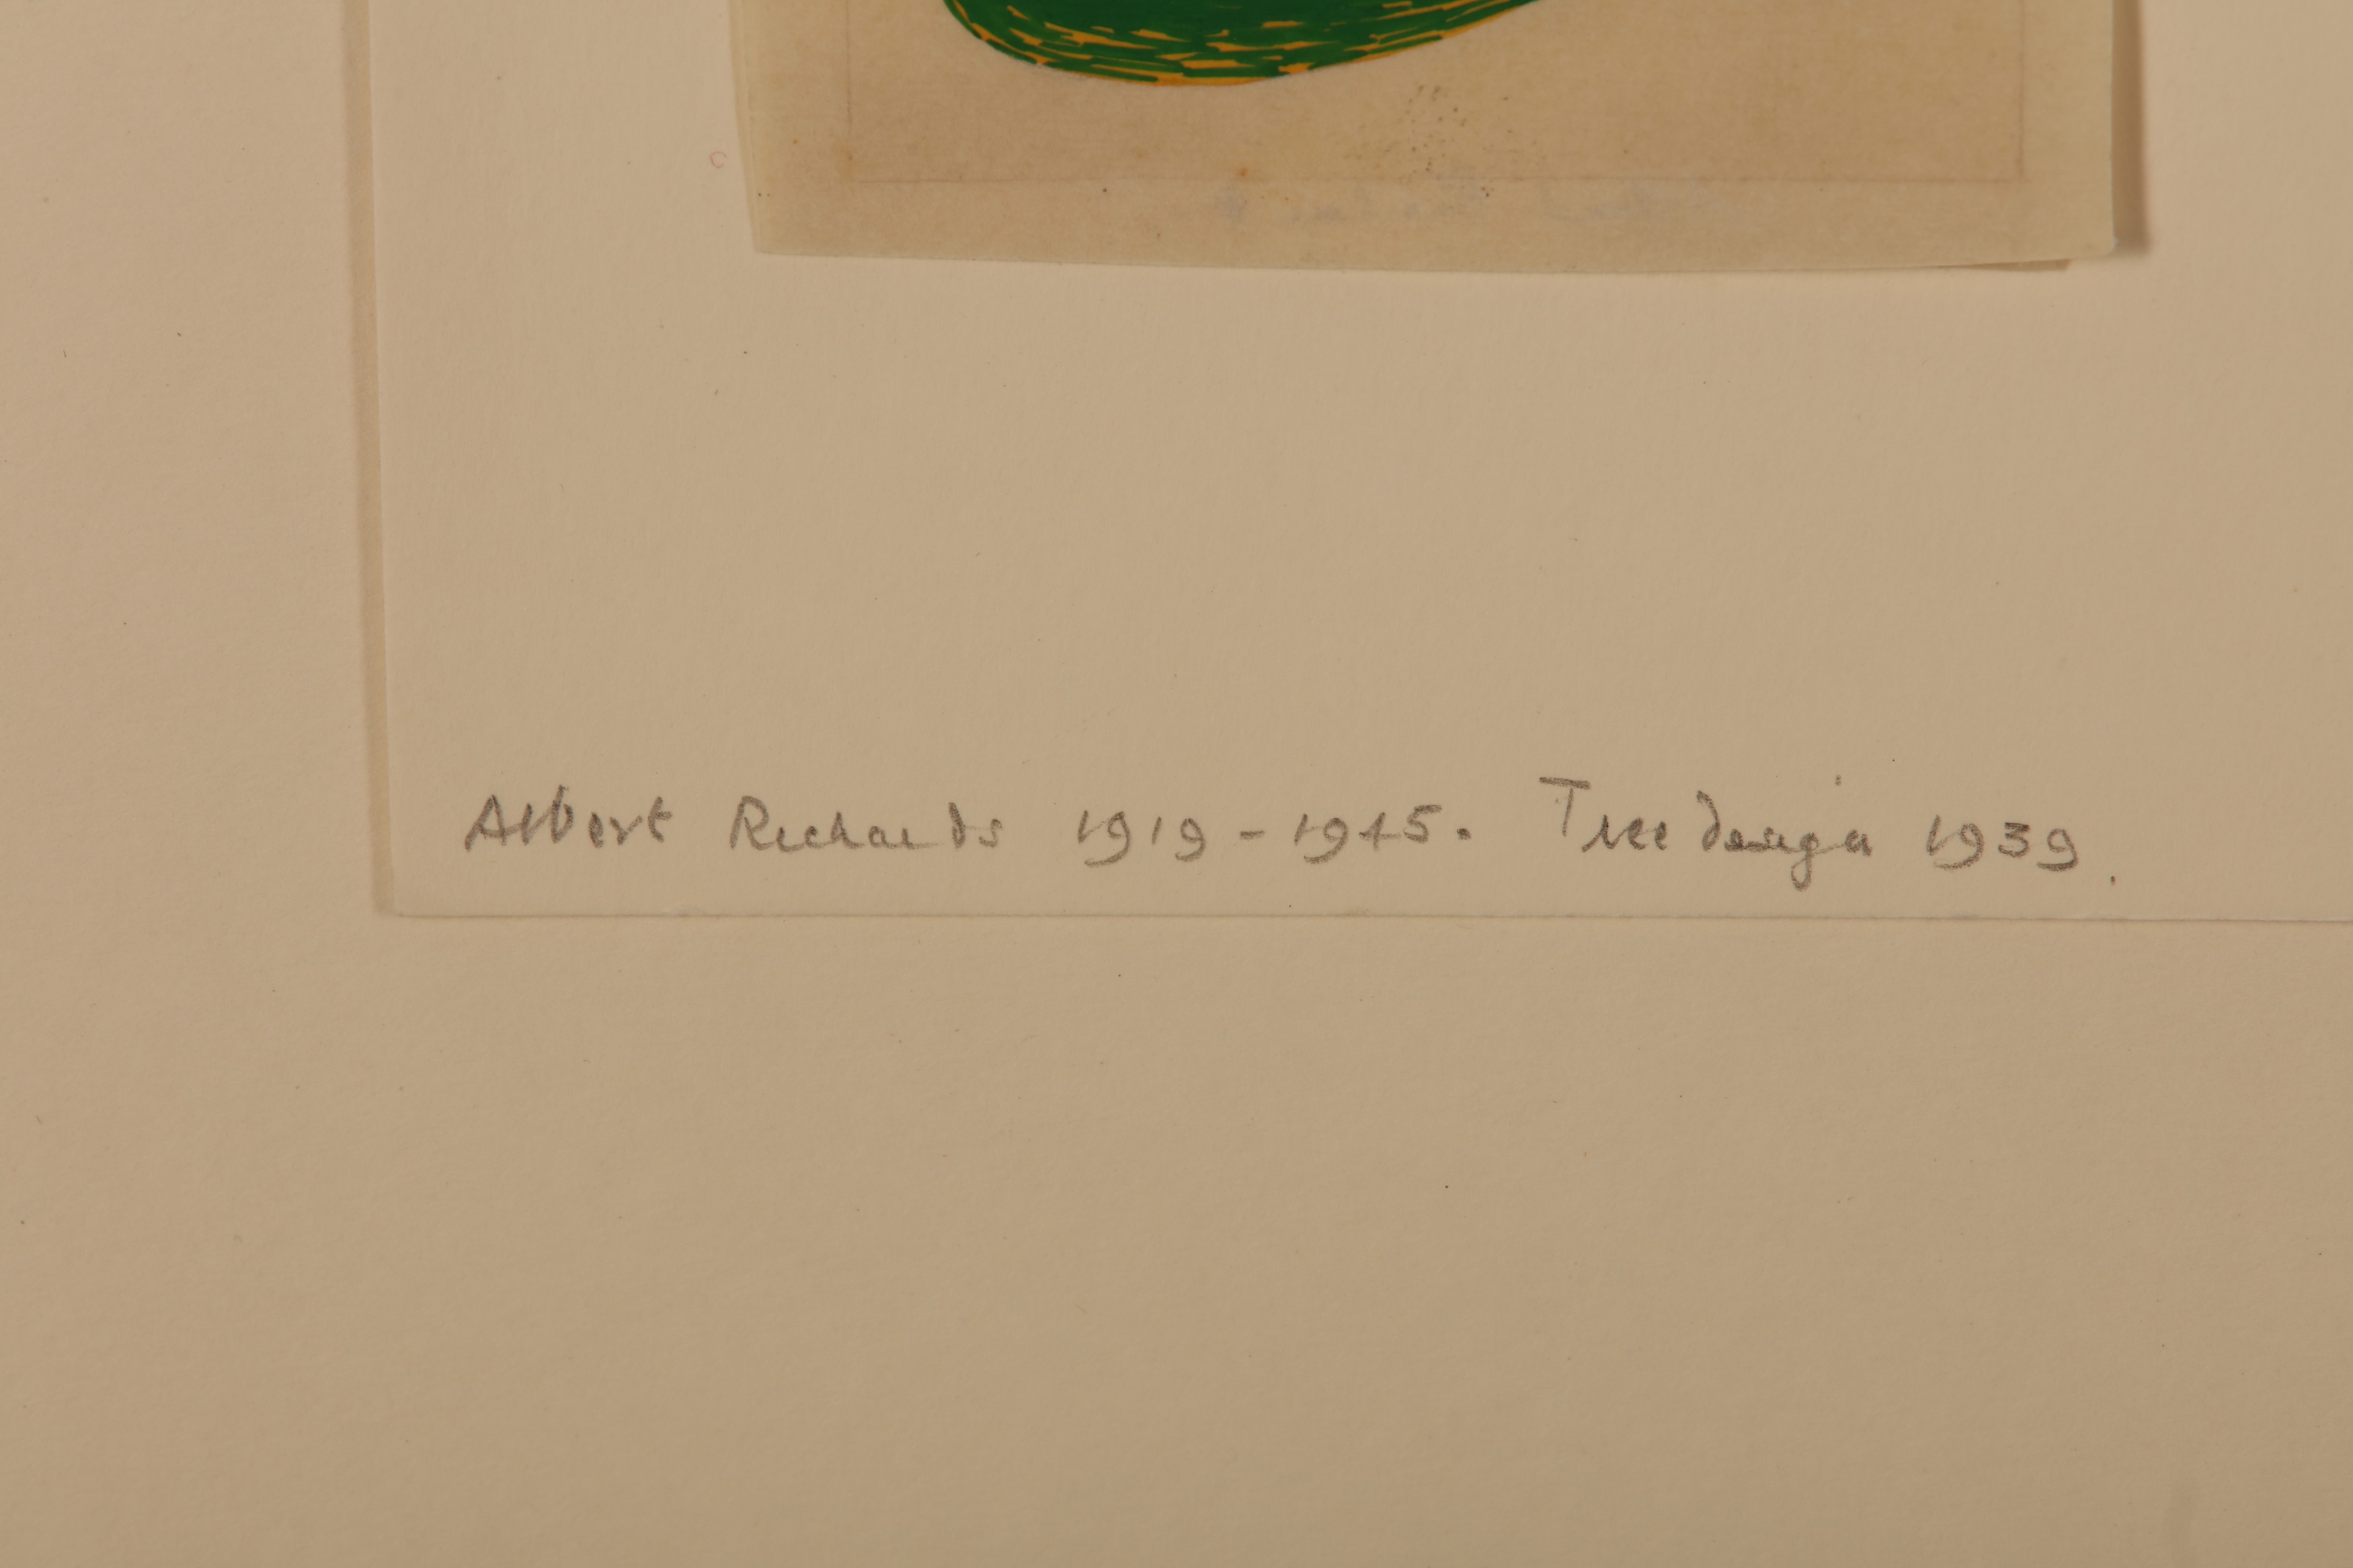 Albert Richards 1919-1945. Tree design 1939.